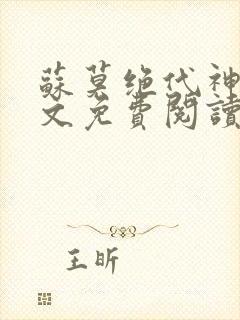 蘇莫绝代神
文免費閱讀
王昕